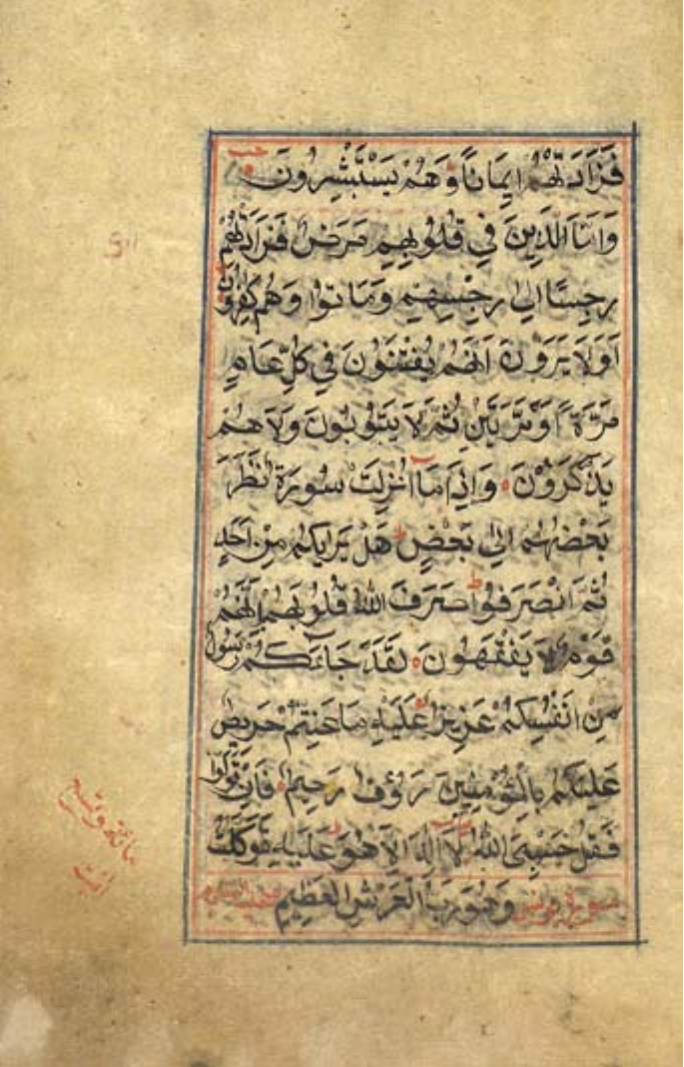 فَزَادَتْهُمْ اِيمَانًا وَهُمْ يَسْتَبْشِرُونَ
وَاَمَّا الَّذِينَ فِي قُلُوبِهِمْ مَرَضٌ فَزَادَتْهُمْ
رِجْسًا اِلٰى رِجْسِهِمْ وَمَاتُوا وَهُمْ كٰفِرُونَ
اَوَلَا يَرَوْنَ اَنَّهُمْ يُفْتَنُونَ فِي كُلِّ عَامٍ
مَرَّةً اَوْ مَرَّتَيْنِ ثُمَّ لَا يَتُوبُونَ وَلَا هُمْ
يَذَّكَّرُوْنَ وَاِذَا مَا اُنْزِلَتْ سُورَةٌ نَظَرَ
بَعْضُهُمْ اِلٰى بَعْضٍ هَلْ يَرَاىكُمْ مِنْ اَحَدٍ
ثُمَّ انْصَرَفُوا صَرَفَ اللّٰهُ قُلُوبَهُمْ بِاَنَّهُمْ
قَوْمٌ لَا يَفْقَهُونَ لَقَدْ جَاءَكُمْ رَسُولٌ
مِنْ اَنْفُسِكُمْ عَزِيزٌ عَلَيْهِ مَا عَنِتُّمْ حَرِيصٌ
عَلَيْكُمْ بِالْمُؤْمِنِينَ رَؤُفٌ رَحِيمٌ فَاِنْ تَوَلَّوْا
فَقُلْ حَسْبِيَ اللّٰهُ لَا اِلٰهَ اِلَّا هُوَ عَلَيْهِ تَوَكَّلْتُ
سورة يونس وَهُوَ رَبُّ الْعَرْشِ الْعَظِيمِ
مائة وتسع